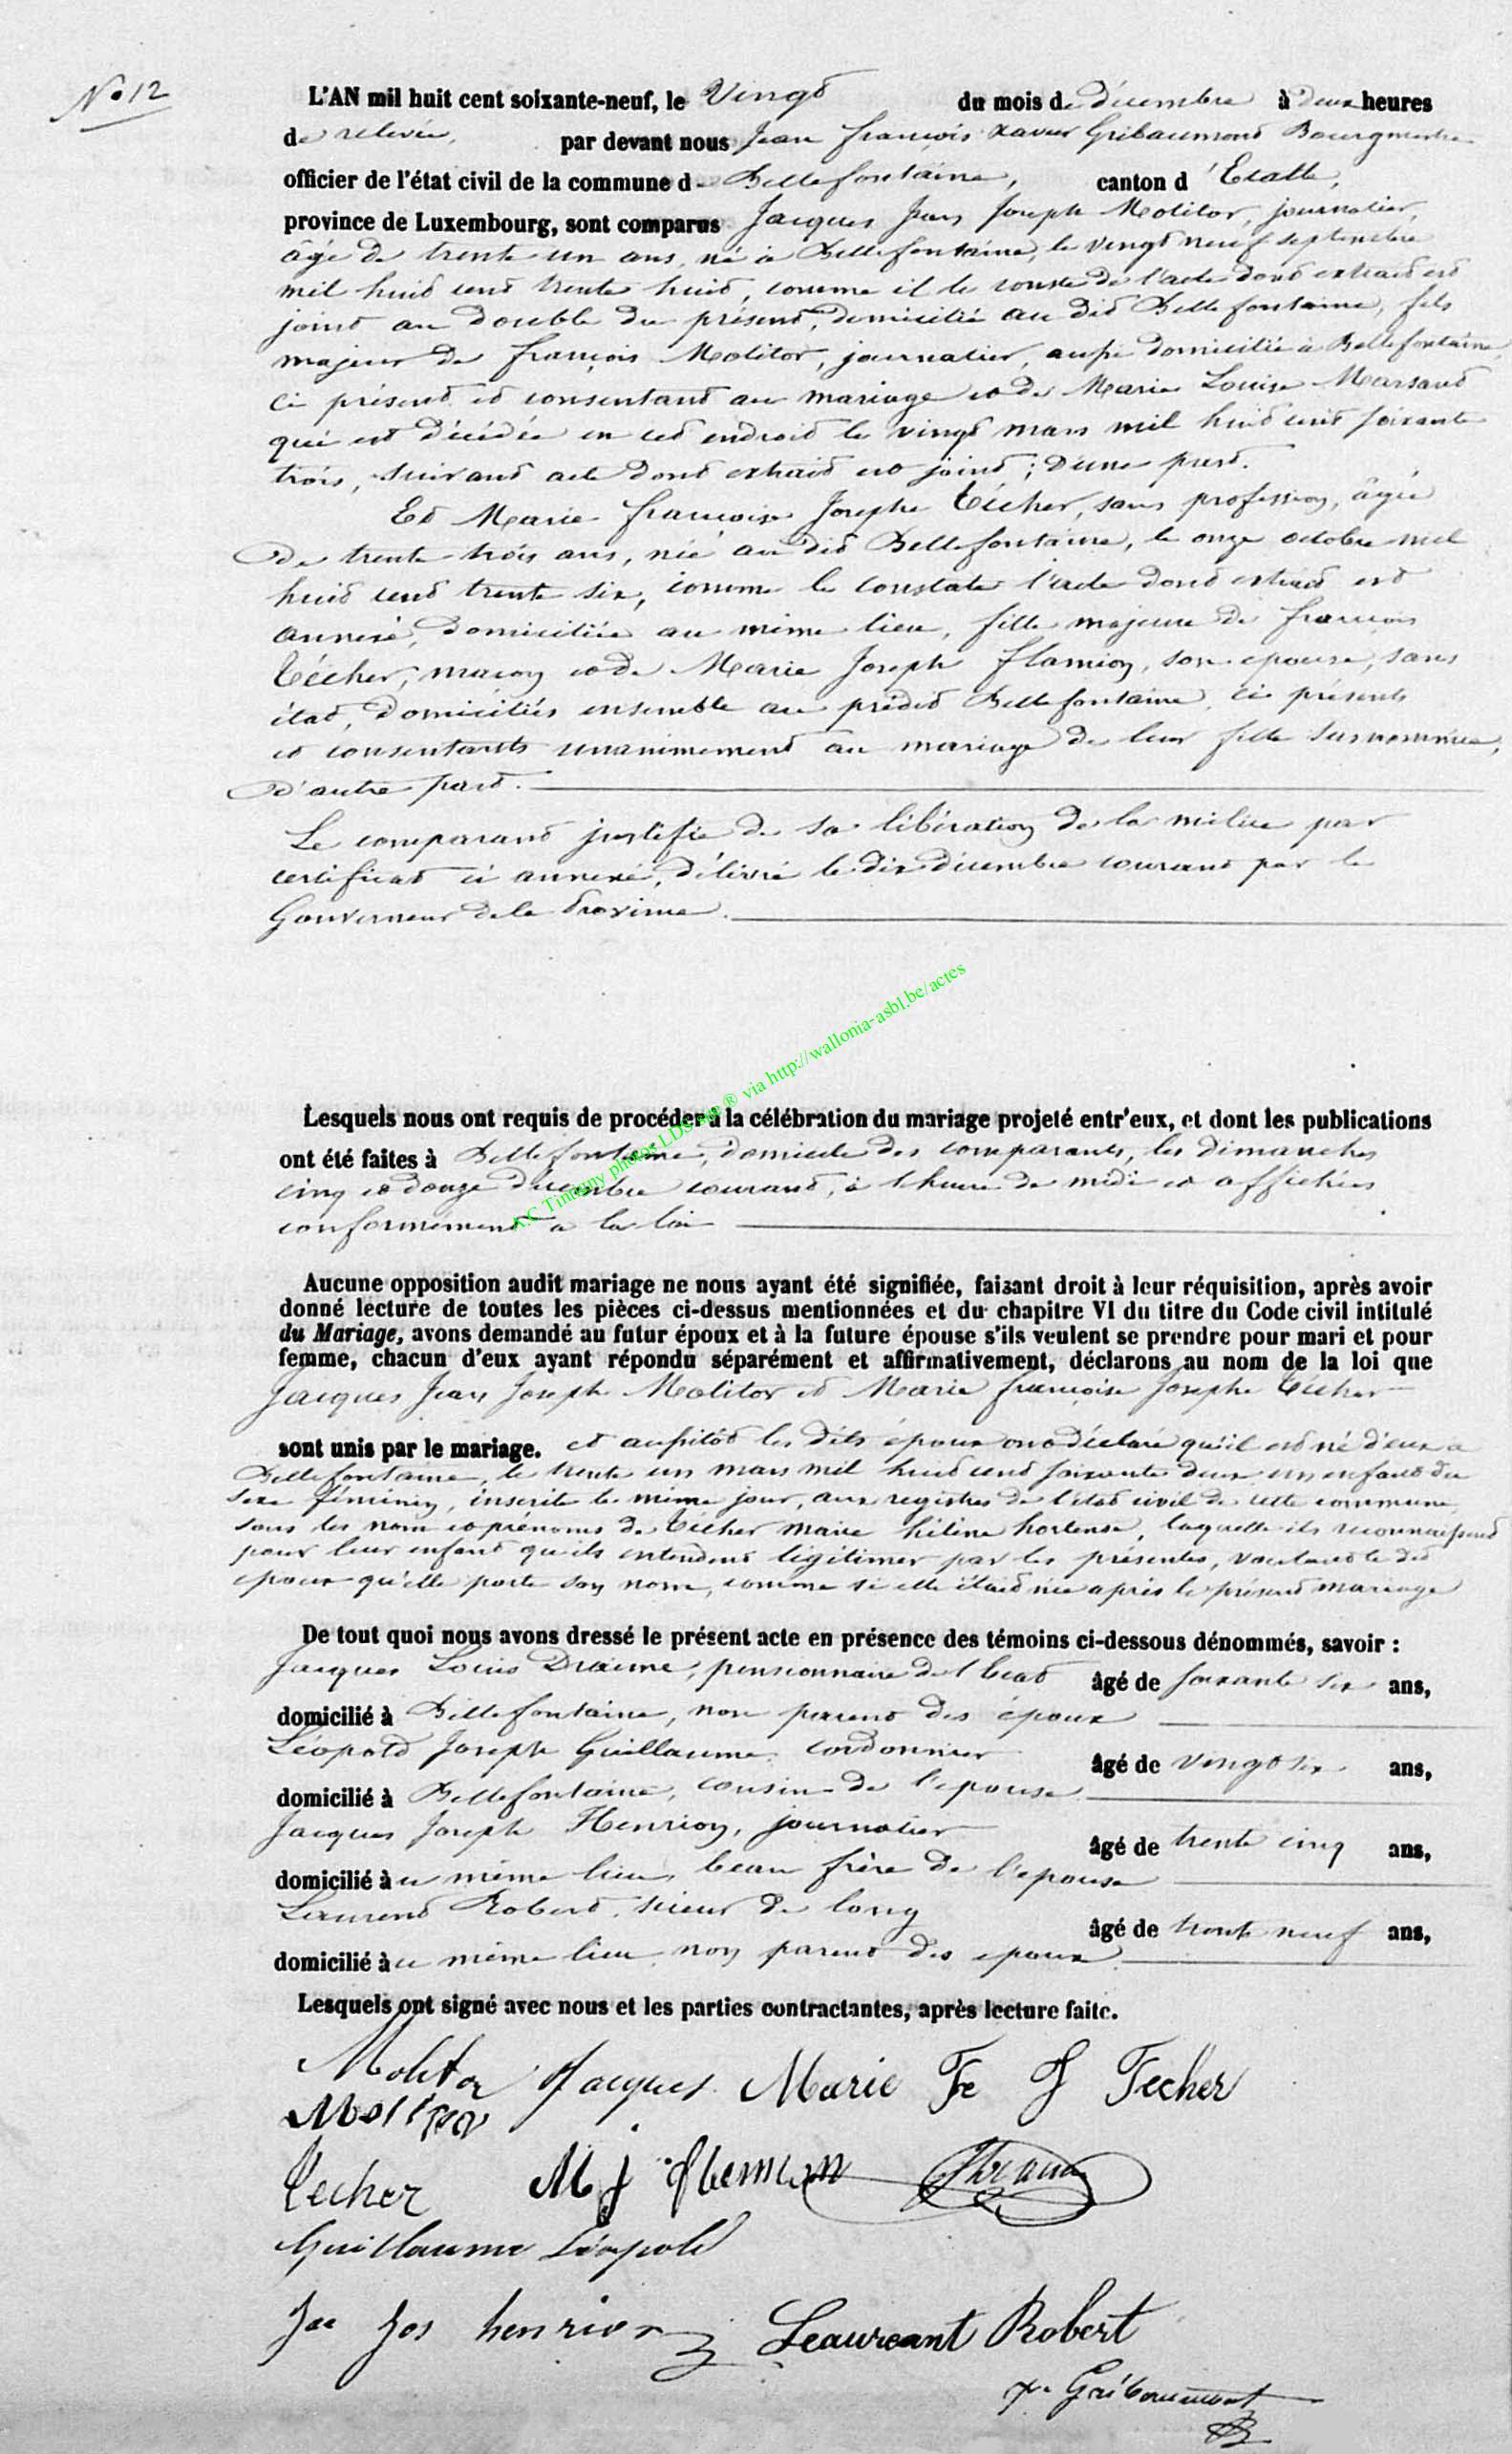 No 12
L'AN mil huit cent soixante-neuf, le Vingt du mois de décembre à deux heures
de relevée, par devant nous Jean françois xavier Gribaumont Bourgmestre
officier de l'état civil de la commune de Bellefontaine, canton d'Etalle,
province de Luxembourg, sont comparus Jacques Jean Joseph Molitor, journalier,
âgé de trente un ans, né à Bellefontaine, le vingt neuf septembre
mil huit cent trente huit, comme il le conste de l'acte dont extrait est
joint au double du présent, domicilié au dit Bellefontaine, fils
majeur de françois Molitor, journalier, aussi domicilié à Bellefontaine
ci présent et consentant au mariage et de Marie Louise Marsaud
qui est décédée en cet endroit le vingt mars mil huit cent soixante
trois, suivant acte dont extrait est joint; d'une part.
Et Marie françoise Josephe Técher, sans profession, âgée
de trente-trois ans, née au dit Bellefontaine, le onze octobre mil
huit cent trente six, comme le constate l'acte dont extrait est
annexé, domiciliée au même lieu, fille majeure de françois
Técher, maçon et de Marie Joseph flamion, son épouse, sans
état, domiciliés ensemble au prédit Bellefontaine, ci présents
et consentants unanimement au mariage de leur fille susnommée,
d'autre part.
Le comparant justifie de sa libération de la milice par
certificat ci annexé, délivré le dix décembre courant par le
Gouverneur de la Province.
A.C Tintigny photos LDS via http://wallonia-asbl.be/actes
Lesquels nous ont requis de procéder à la célébration du mariage projeté entr'eux, et dont les publications
ont été faites à Bellefontaine, domicile des comparants, les dimanches
cinq et douze décembre courant, à l'heure de midi et affichées
conformément à la loi
Aucune opposition audit mariage ne nous ayant été signifiée, faisant droit à leur réquisition, après avoir
donné lecture de toutes les pièces ci-dessus mentionnées et du chapitre VI du titre du Code civil intitulé
du Mariage, avons demandé au futur époux et à la future épouse s'ils veulent se prendre pour mari et pour
femme, chacun d'eux ayant répondu séparément et affirmativement, déclarons au nom de la loi que
Jacques Jean Joseph Molitor et Marie françoise Josephe Técher
sont unis par le mariage. et aussitôt les dits époux ont déclaré qu'il est né d'eux à
Bellefontaine, le trente un mars mil huit cent soixante deux un enfant du
sexe féminin, inscrite le même jour, aux registres de l'état civil de cette commune
sous les nom et prénoms de Técher marie hélène hortense, laquelle ils reconnaissent
pour leur enfant qu'ils entendent légitimer par les présentes, voulant le dit
époux qu'elle porte son nom, comme si elle était née après le présent mariage
De tout quoi nous avons dressé le présent acte en présence des témoins ci-dessous dénommés, savoir :
Jacques Louis Draime, pensionnaire de l'Etat âgé de soixante six ans,
domicilié à Bellefontaine, non parent des époux
Léopold Joseph Guillaume, cordonnier âgé de vingt six ans,
domicilié à Bellefontaine, cousin de l'épouse
Jacques Joseph Henrion, journalier âgé de trente cinq ans,
domicilié au même lieu, beau frère de l'épouse
Laurent Robert, scieur de long âgé de trente neuf ans,
domicilié au même lieu non parent des époux.
Lesquels ont signé avec nous et les parties contractantes, après lecture faite.
Molitor Jacques Marie Fe J Techer
Molitor
Techer M J flemion
Guillaume Léopold
Ja Jos henrion Leaureant Robert
x. Gribaumont